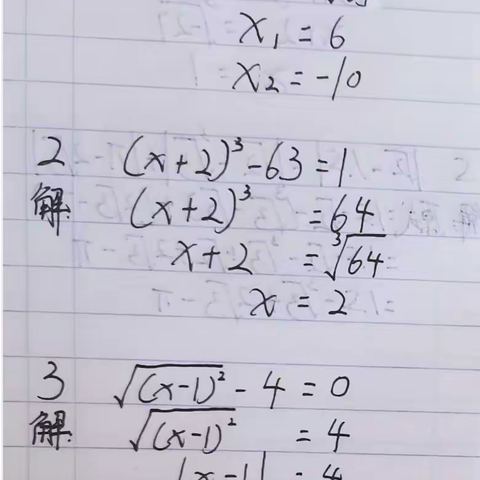 x₁ = 6
x₂ = -10
2 (x+2)³ - 63 = 1
解 (x+2)³ = 64
x+2 = ∛64
x = 2
3 √(x-1)² - 4 = 0
解: √(x-1)² = 4
|x-1| = 4